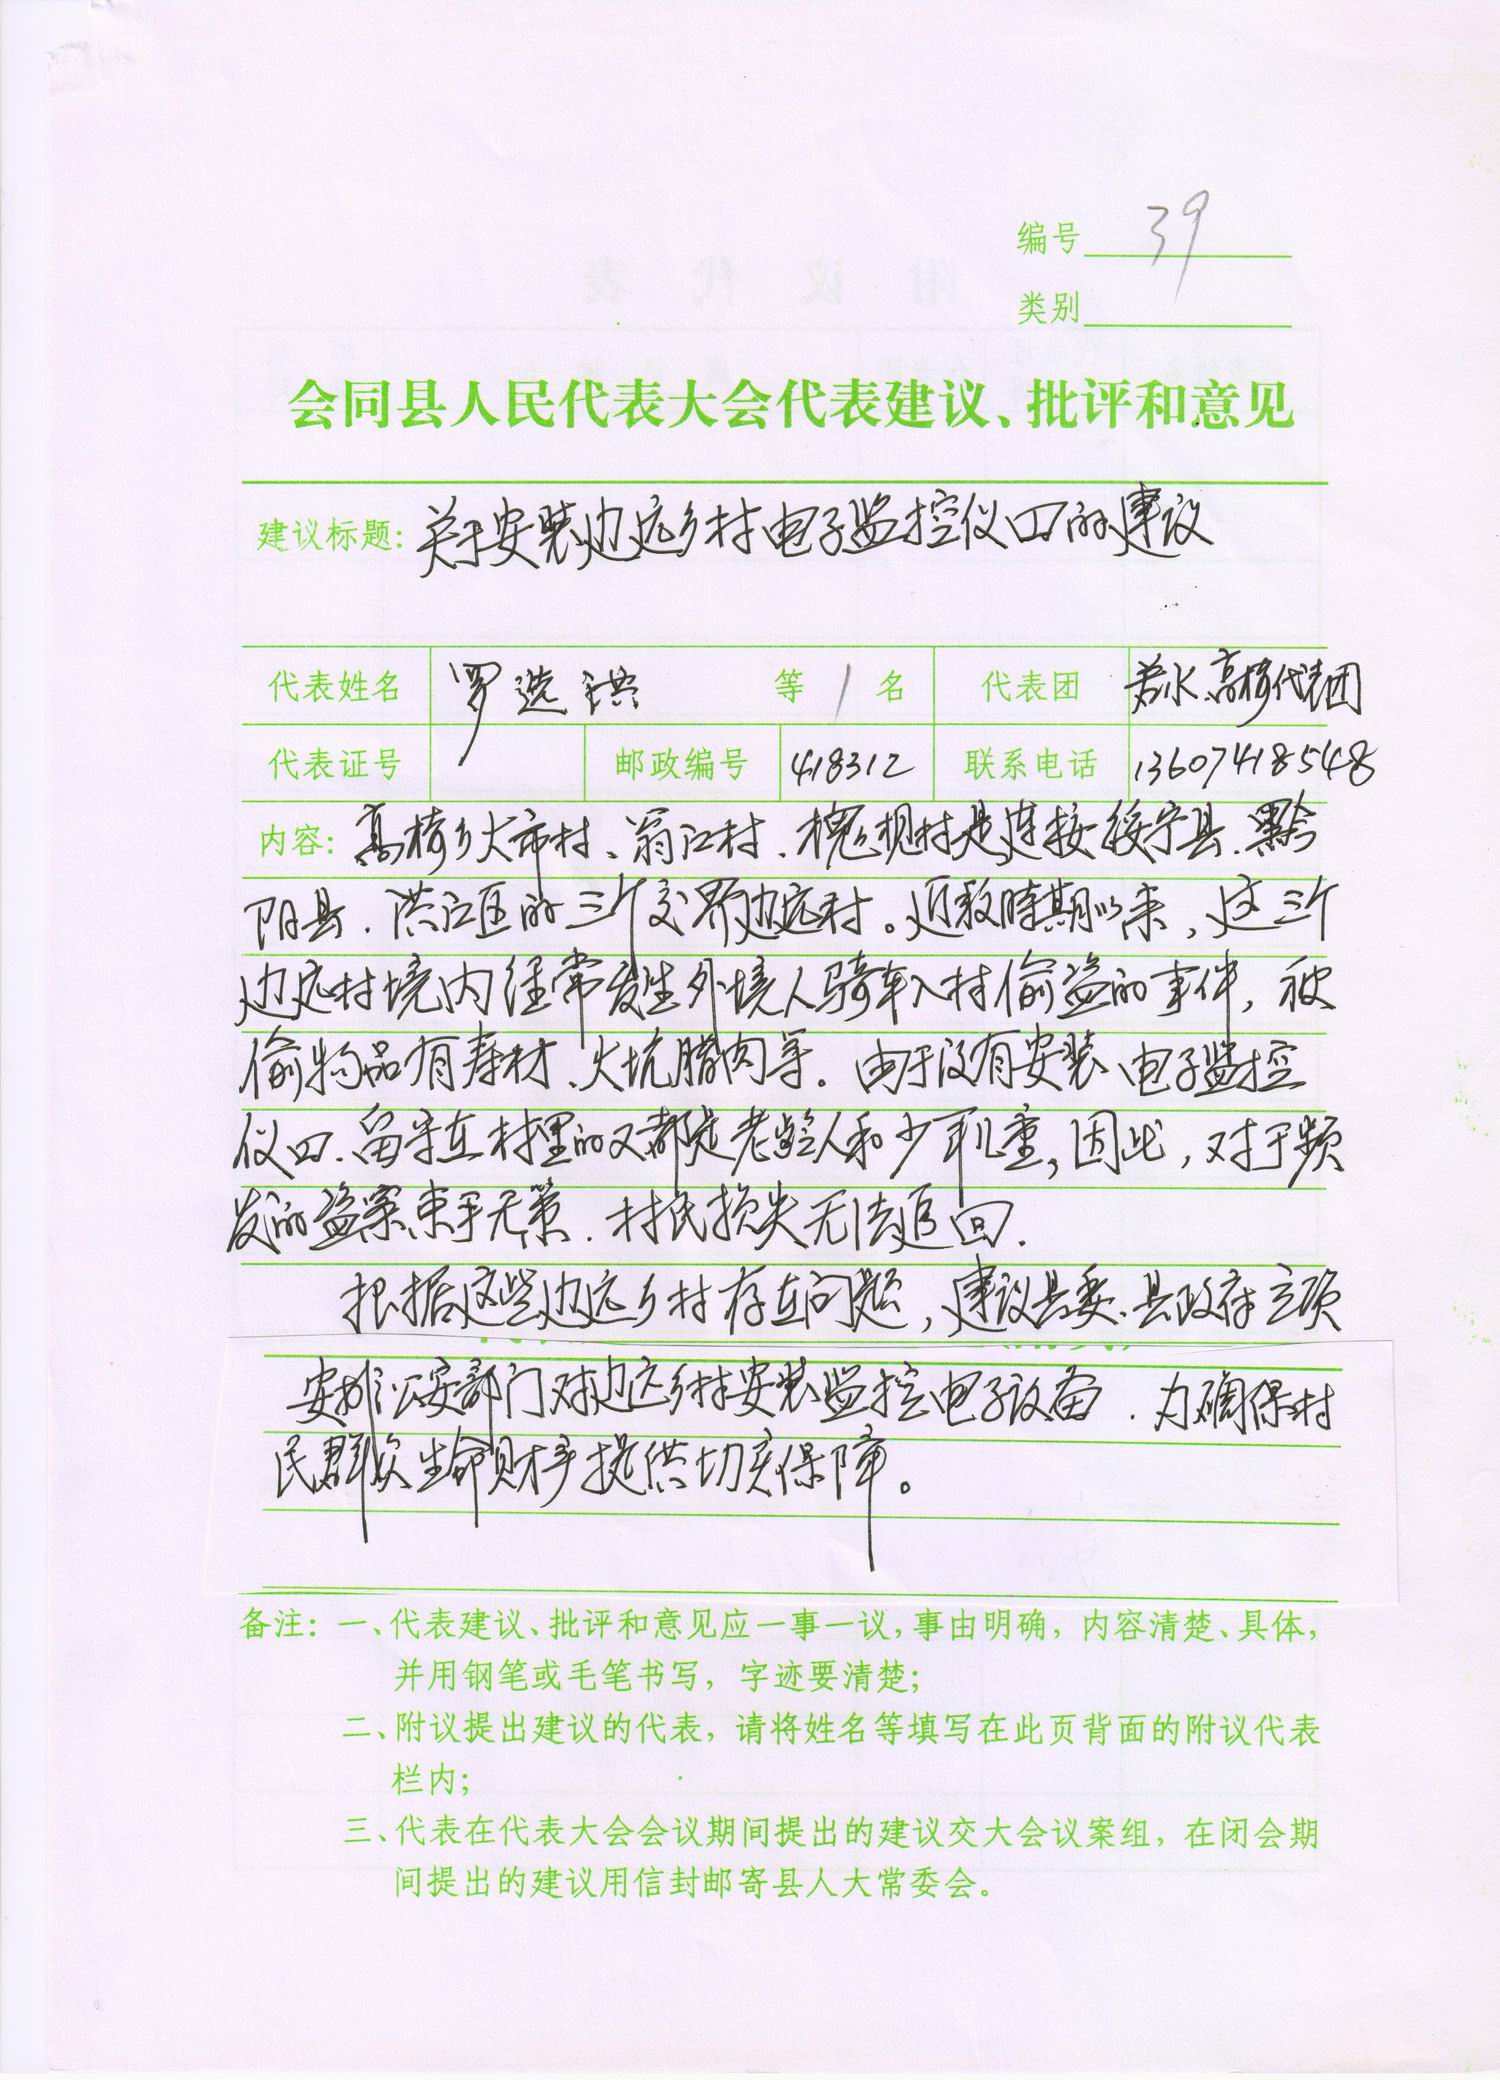 编号 39
类别
会同县人民代表大会代表建议、批评和意见
建议标题: 关于安装边远乡村电子监控仪四的建议
代表姓名 罗选洪 等 1 名 代表团 若水、高椅代表团
代表证号 邮政编号 418312 联系电话 13607418548
内容: 高椅乡大市村、翁江村、槐枧村是连接绥宁县、黔
阳县、洪江区的三个交界边远村。近段时期以来，这三个
边远村境内经常发生外境人骑车入村偷盗的事件，被
偷物品有寿材、火坑腊肉等。由于没有安装电子监控
仪四、留守在村里的又都是老龄人和少年儿童，因此，对于频
发的盗案束手无策、村民损失无法追回.
根据这些边远乡村存在问题，建议县委、县政府立项
安排公安部门对边远乡村安装监控电子设备、为确保村
民群众生命财产提供切实保障。
备注: 一、代表建议、批评和意见应一事一议, 事由明确, 内容清楚、具体,
并用钢笔或毛笔书写, 字迹要清楚;
二、附议提出建议的代表, 请将姓名等填写在此页背面的附议代表
栏内;
三、代表在代表大会会议期间提出的建议交大会议案组, 在闭会期
间提出的建议用信封邮寄县人大常委会。